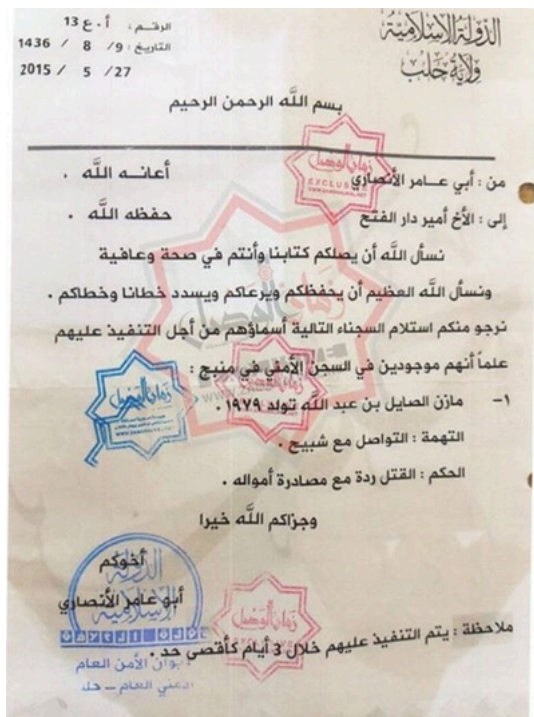 الدولة الإسلامية
ولاية حلب
الرقم : أ . ع 13
التاريخ : 9/ 8 / 1436
27/ 5 / 2015
بسم الله الرحمن الرحيم
من : أبي عامر الأنصاري أعانه الله .
إلى : الأخ أمير دار الفتح حفظه الله .
نسأل الله أن يصلكم كتابنا وأنتم في صحة وعافية
ونسأل الله العظيم أن يحفظكم ويرعاكم ويسدد خطانا وخطاكم .
نرجو منكم استلام السجناء التالية أسماؤهم من أجل التنفيذ عليهم
علماً أنهم موجودين في السجن الأمني في منبج :
١- مازن الصايل بن عبد الله تولد ١٩٧٩ .
التهمة : التواصل مع شبيح .
الحكم : القتل ردة مع مصادرة أمواله .
وجزاكم الله خيرا
أخوكم
أبو عامر الأنصاري
الدولة
الإسلامية
ديوان الأمن العام
ملاحظة : يتم التنفيذ عليهم خلال 3 أيام كأقصى حد .
زمان الوصل
EXCLUSIVE
زمان الوصل
زمان الوصل
زمان الوصل